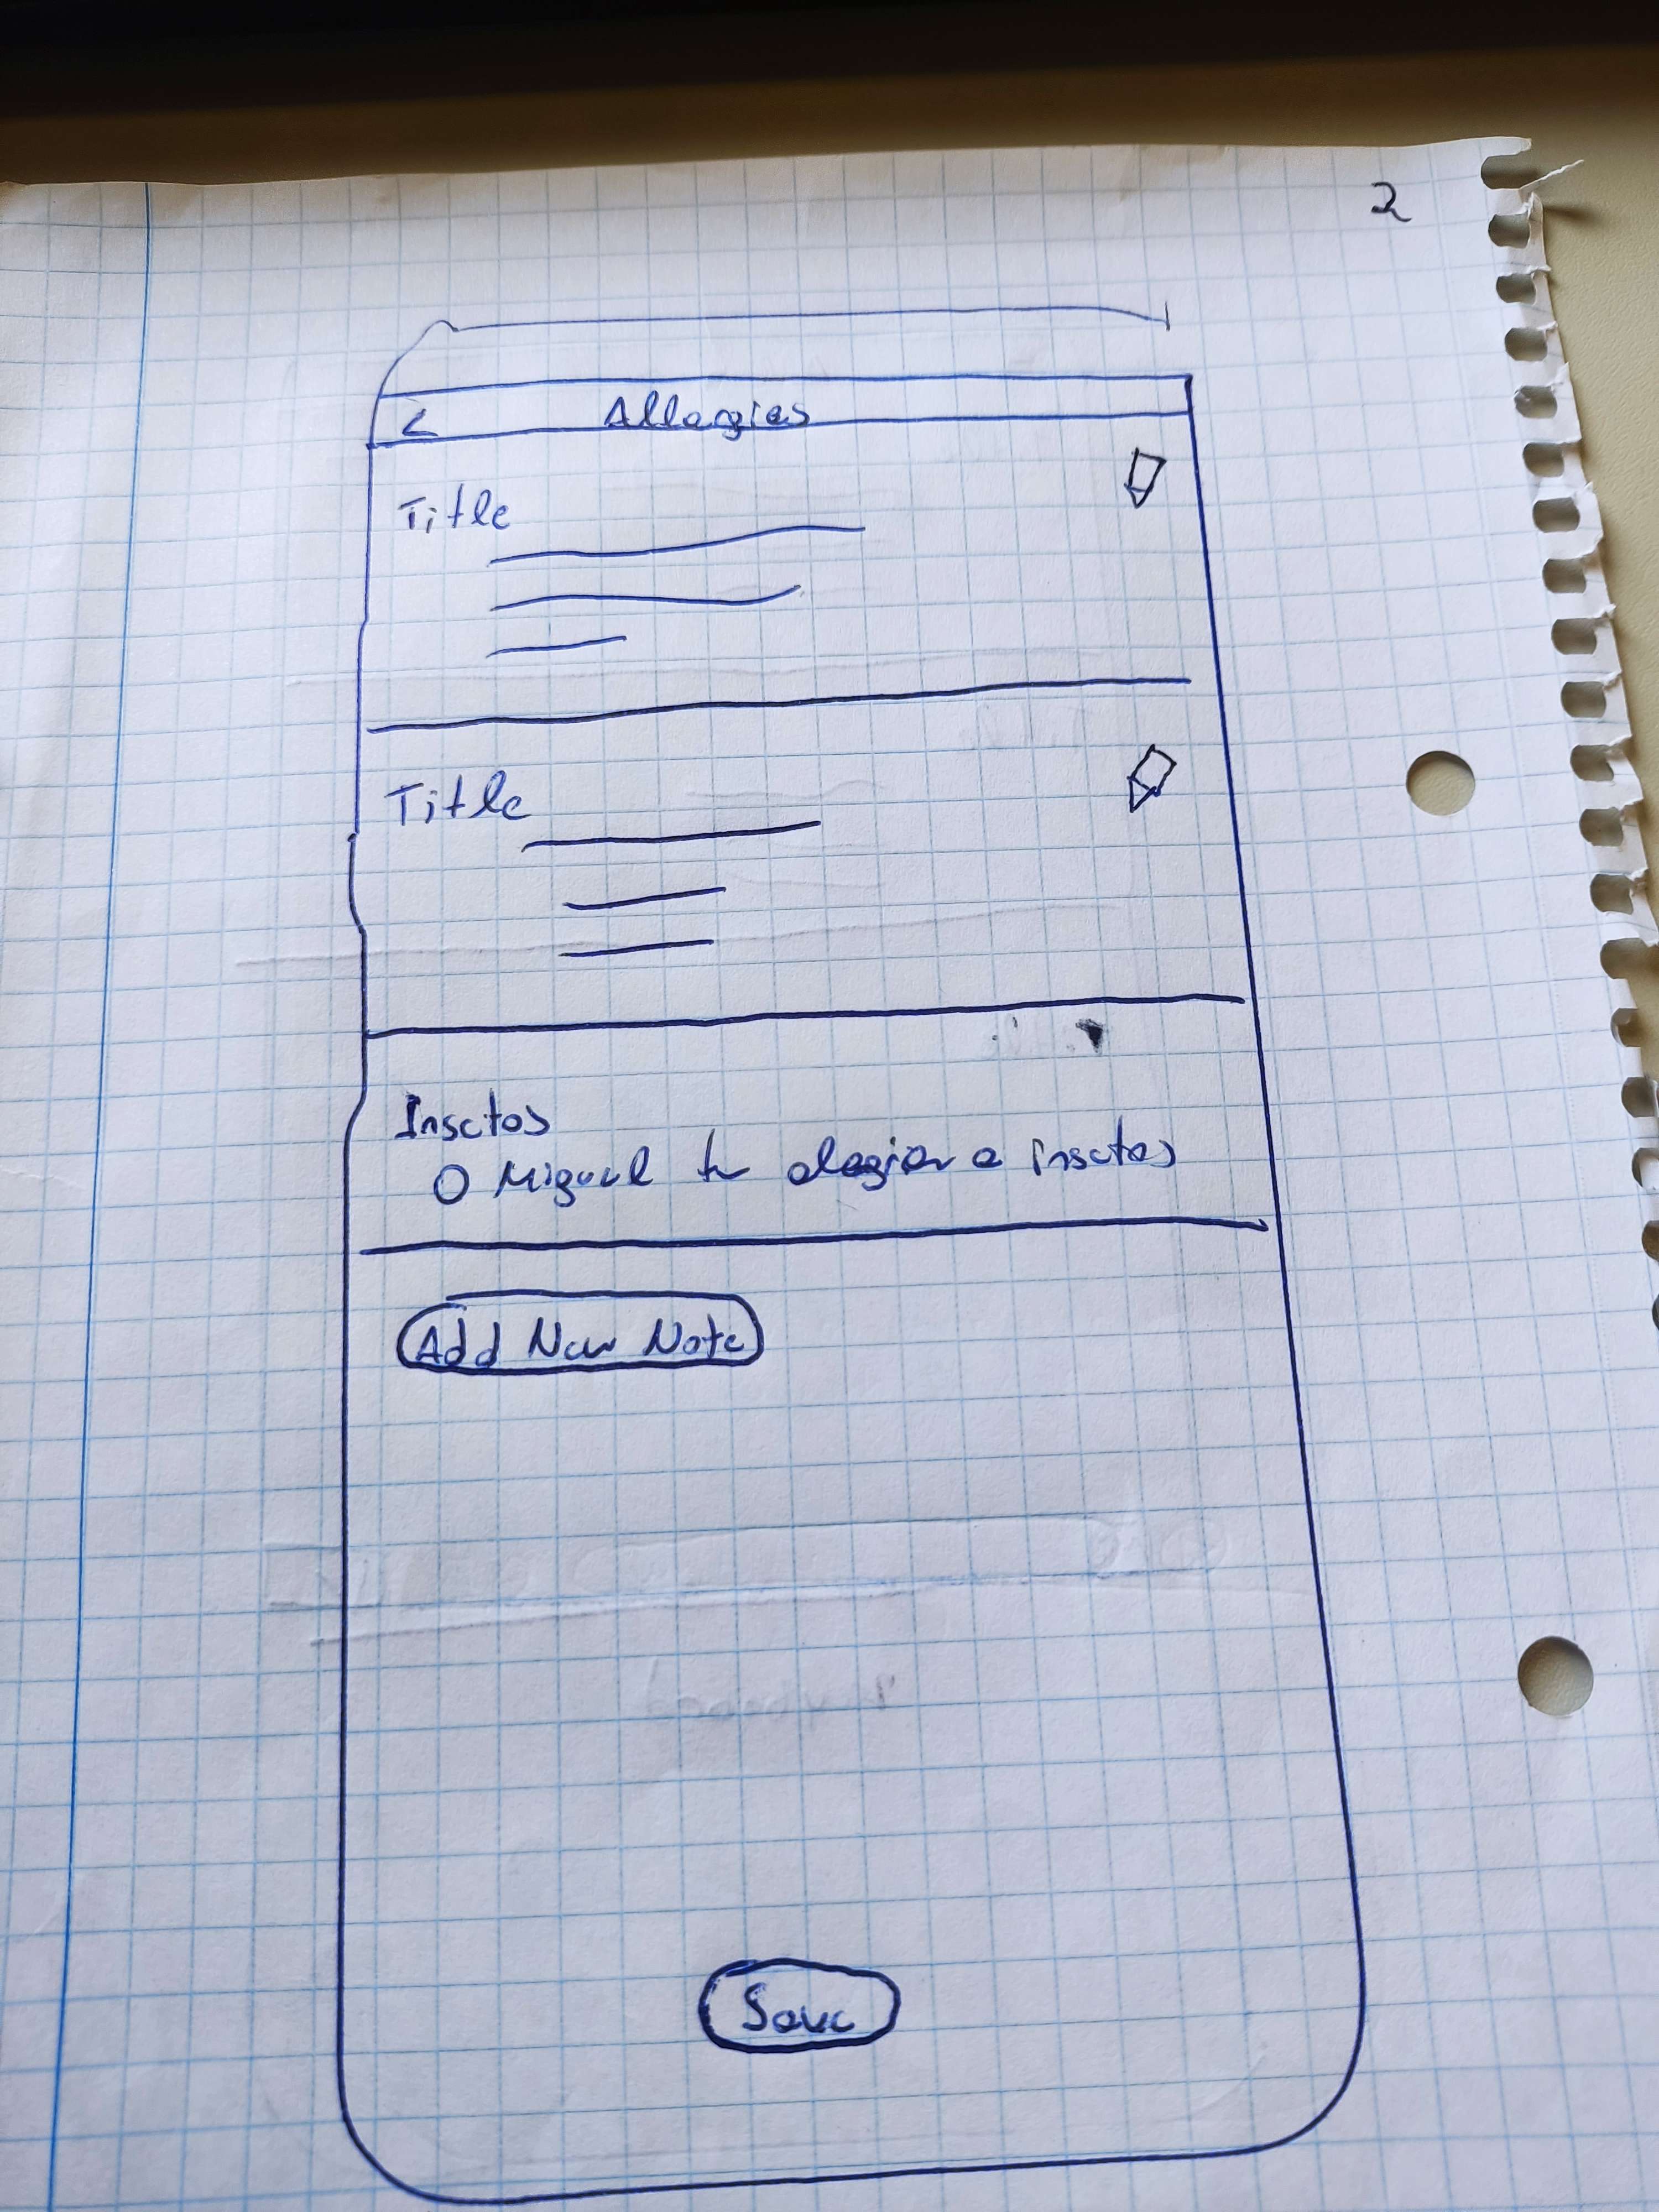 2
< Allergies
Title
Title
Insetos
O Miguel tm alergia a insetos
Add New Note
Save